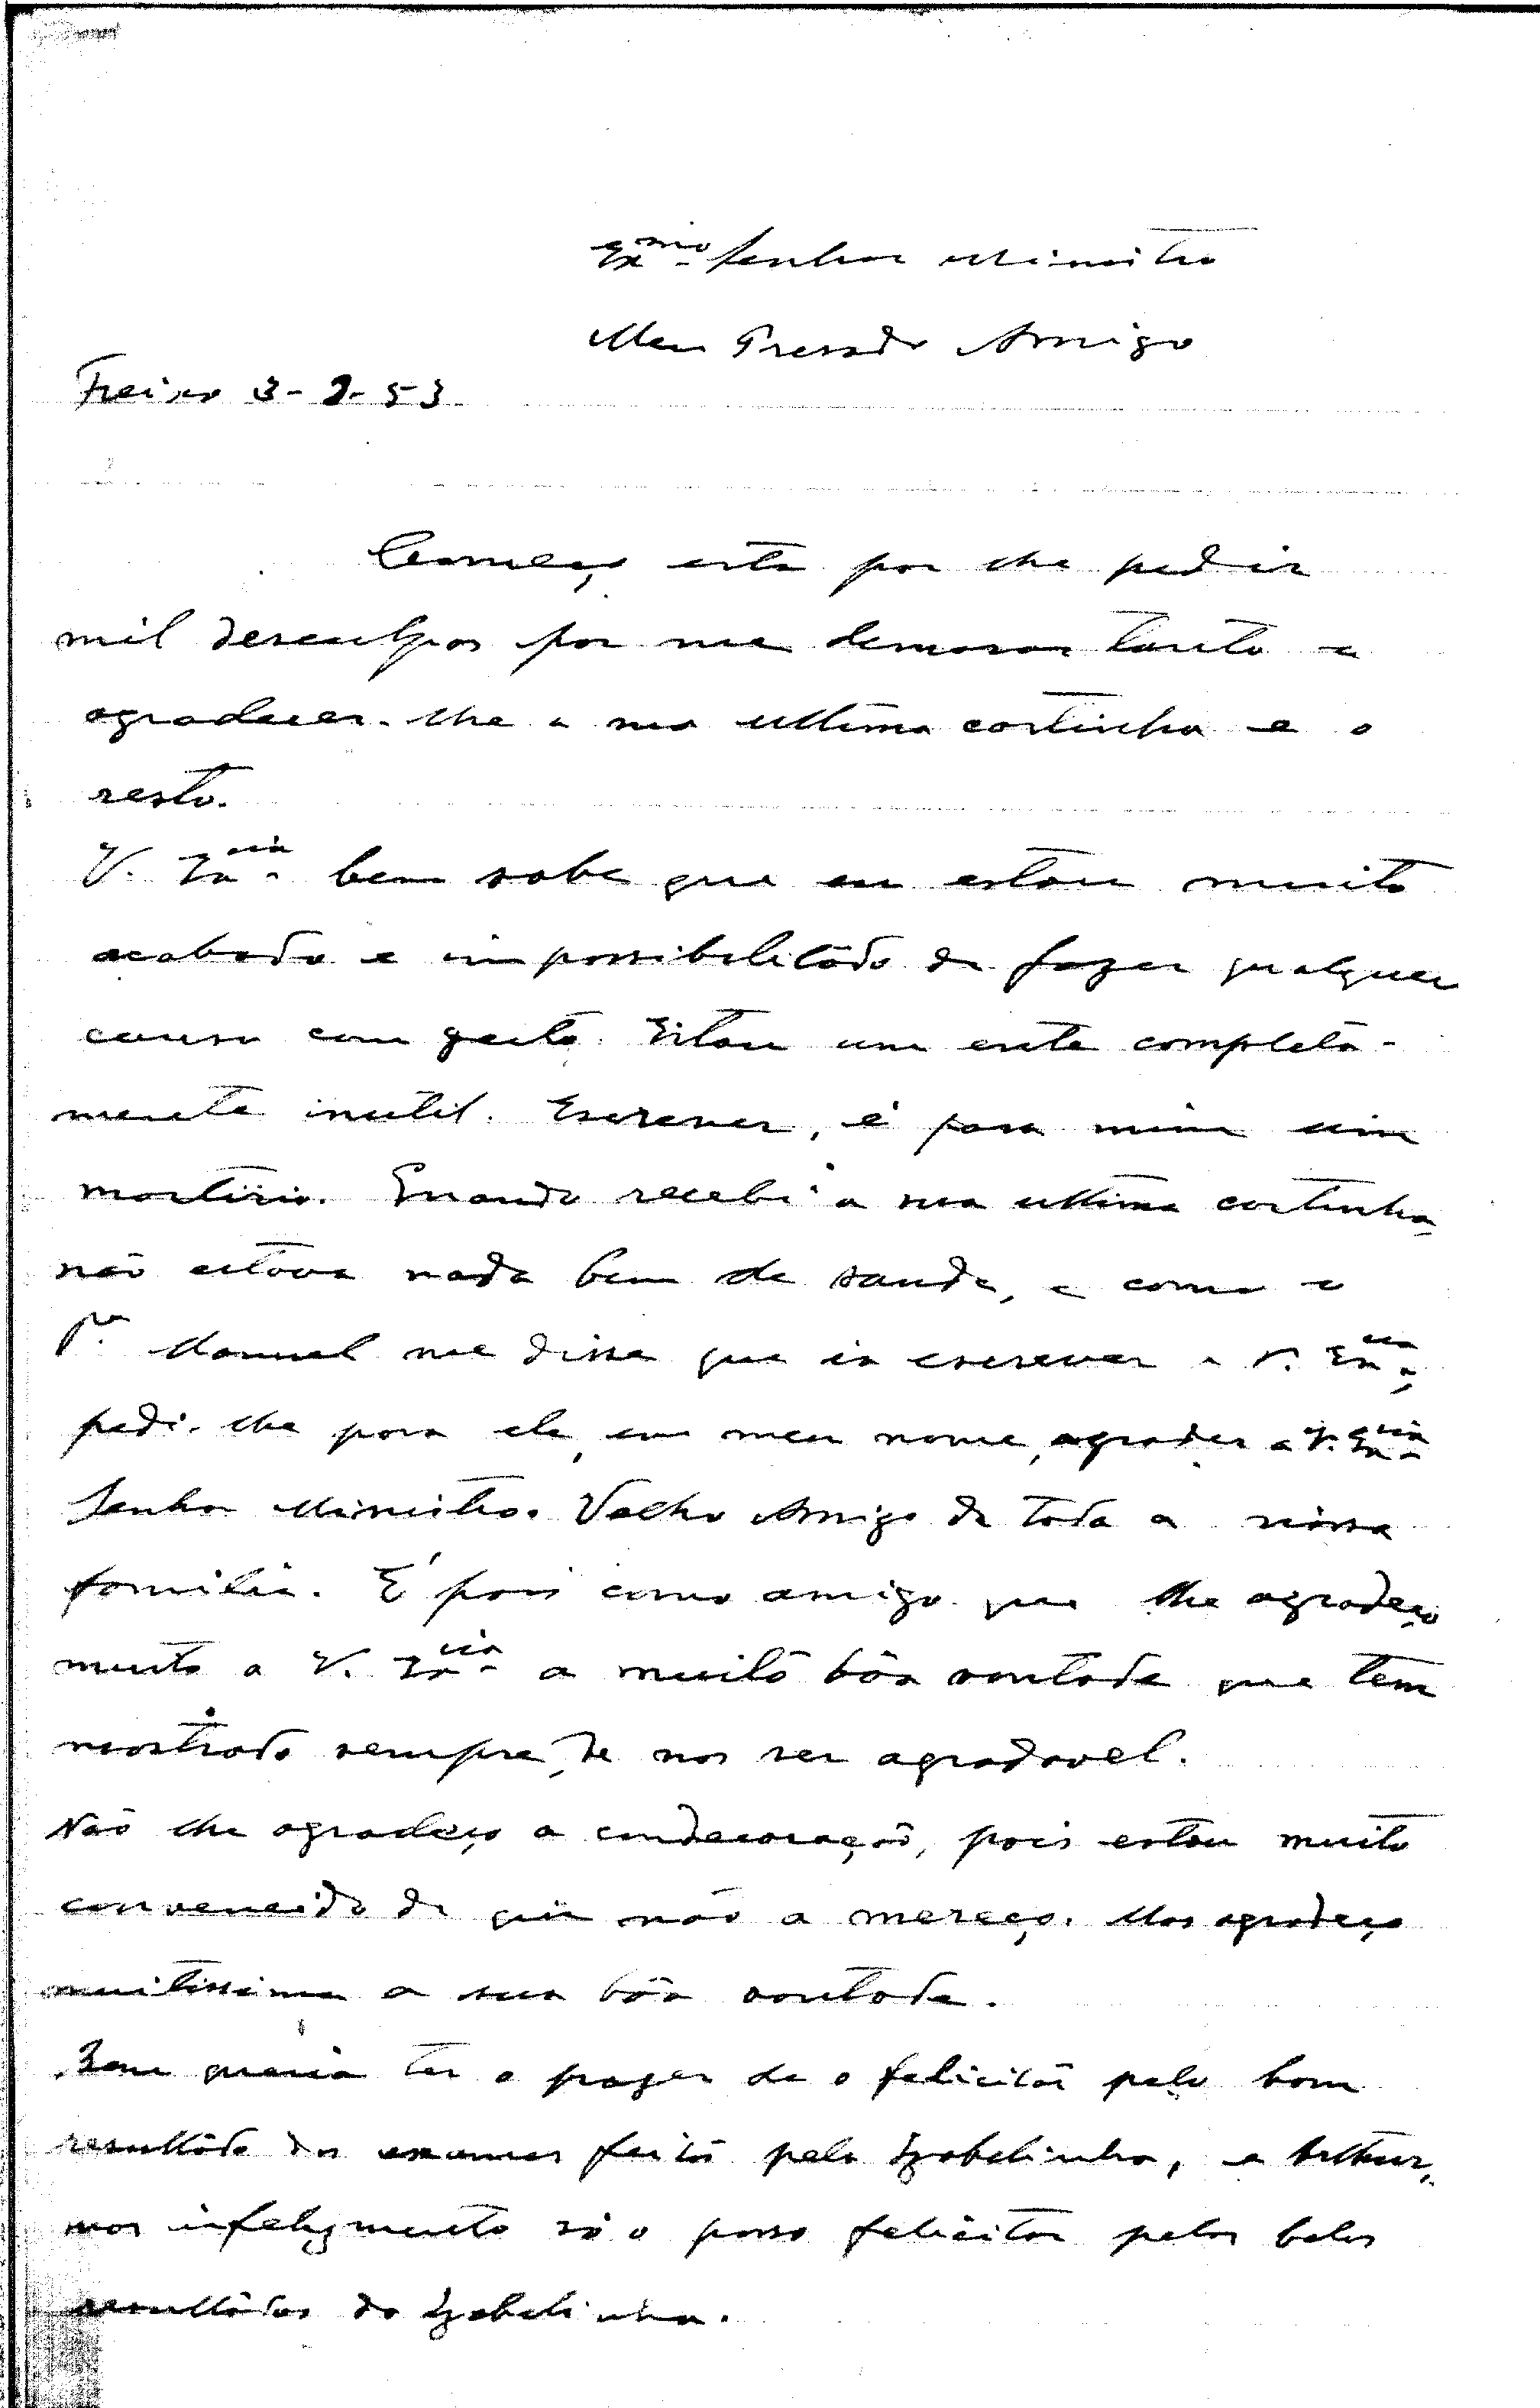 Ex.mo Senhor Ministro
Meu Presado Amigo
Freixo 3-9-53
Começo esta por lhe pedir
mil desculpas por me demorar tanto a
agradecer-lhe a sua ultima cartinha e o
resto.
V. Ex.cia bem sabe que eu estou muito
acabado e impossibilitado de fazer qualquer
cousa com geito. Estou um ente completa-
mente inutil. Escrever, é para mim um
martirio. Quando recebi a sua ultima cartinha
não estava nada bem de saude, e como o
P.e Manuel me disse que ia escrever a V. Ex.cia,
pedi-lhe para ele, em meu nome, agrader a V. Ex.cia
Senhor Ministro. Velho Amigo de toda a nossa
familia. É pois como amigo que lhe agradeço
muito a V. Ex.cia a muito bôa vontade que tem
mostrado sempre, de nos ser agradavel.
Não lhe agradeço a condecoração, pois estou muito
convencido de que não a mereço. Mas agradeço
muitissimo a sua bôa vontade.
Bem queria ter o prazer de o felicitar pelo bom
resultado dos exames feitos pela Izabelinha, e Arthur,
mas infelizmente só o posso felicitar pelos belos
resultados da Izabelinha.